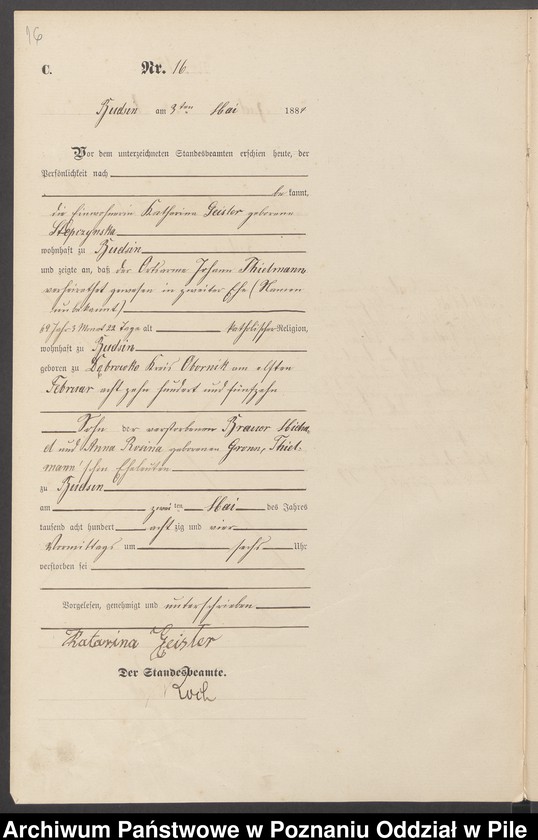 16
C.
Nr. 16.
Budsin am 3ten Mai 1884
Vor dem unterzeichneten Standesbeamten erschien heute, der
Persönlichkeit nach
bekannt,
die Einwohnerin Katharina Geister geborene
Stepczynska
wohnhaft zu Budsin
und zeigte an, daß der Ortsarme Johann Thielmann,
verheirathet gewesen in zweiter Ehe (Namen
unbekannt)
69 Jahr 3 Monat 22 Tage alt katholischer Religion,
wohnhaft zu Budsin
geboren zu Dąbrowko Kreis Obornik am elften
Februar achtzehn hundert und fünfzehn
Sohn der verstorbenen Brauer Micha-
el und Anna Rosina geborenen Thiel-
mann'schen Eheleuten
zu Budsin
am zweiten Mai des Jahres
tausend acht hundert achtzig und vier
Vormittags um sechs Uhr
verstorben sei
Vorgelesen, genehmigt und unterschrieben
Katarina Geister
Der Standesbeamte.
Koch
Archiwum Państwowe w Poznaniu Oddział w Pile